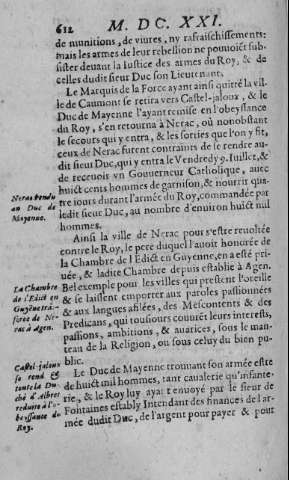 612
M. DC. XXI.
de munitions, de viures, ny rafraischissements:
mais les armes de leur rebellion ne pouuoiẽt sub-
sister deuant la Iustice des armes du Roy, & de
celles dudit sieur Duc son Lieutenant.
Le Marquis de la Force ayant ainsi quitté la vil-
le de Caumont se retira vers Castel-jaloux, & le
Duc de Mayenne l'ayant remise en l'obeyssance
du Roy, s'en retourna à Nerac, où nonobstant
le secours qui y entra, & les sorties que l'on y fit,
ceux de Nerac furent contraints de se rendre au-
dit sieur Duc, qui y entra le Vendredy 9. Iuillet, &
de receuoir vn Gouuerneur Catholique, auec
huict cents hommes de garnison, & nourrir qua-
tre iours durant l'armée du Roy, commandée par
ledit sieur Duc, au nombre d'enuiron huict mil
hommes.
Nerac rendu
au Duc de
Mayenne.
Ainsi la ville de Nerac pour s'estre reuoltée
contre le Roy, le pere duquel l'auoit honorée de
la Chambre de l'Edict en Guyenne, en a esté pri-
uée, & ladite Chambre depuis establie à Agen.
Bel exemple pour les villes qui prestent l'oreille
& se laissent emporter aux paroles passionnées
& aux langues afilées, des Mescontents & des
Predicans, qui tousiours couurẽt leurs interests,
passions, ambitions, & auarices, sous le man-
teau de la Religion, ou sous celuy du bien pu-
blic.
La Chambre
de l'Edict en
Guyẽne trãs-
ferée de Ne-
rac à Agen.
Le Duc de Mayenne trouuant son armée estre
de huict mil hommes, tant caualerie qu'infante-
rie, & le Roy luy ayant enuoyé par le sieur de
Fontaines estably Intendant des finances de l'ar-
mée dudit Duc, de l'argent pour payer & pour
Castel-jaloux
se rend &
toute la Du-
ché d'Albret
reduite à l'o-
beyssance du
Roy.